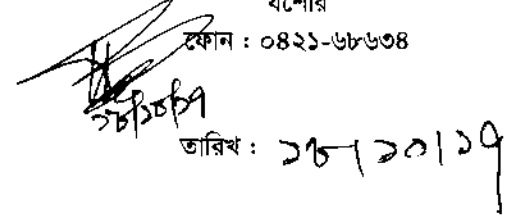 যশোর
ফোন : ০৪২১-৬৮৬৩৪
১৮/১০/১৭
তারিখ : ১৮/১০/১৭